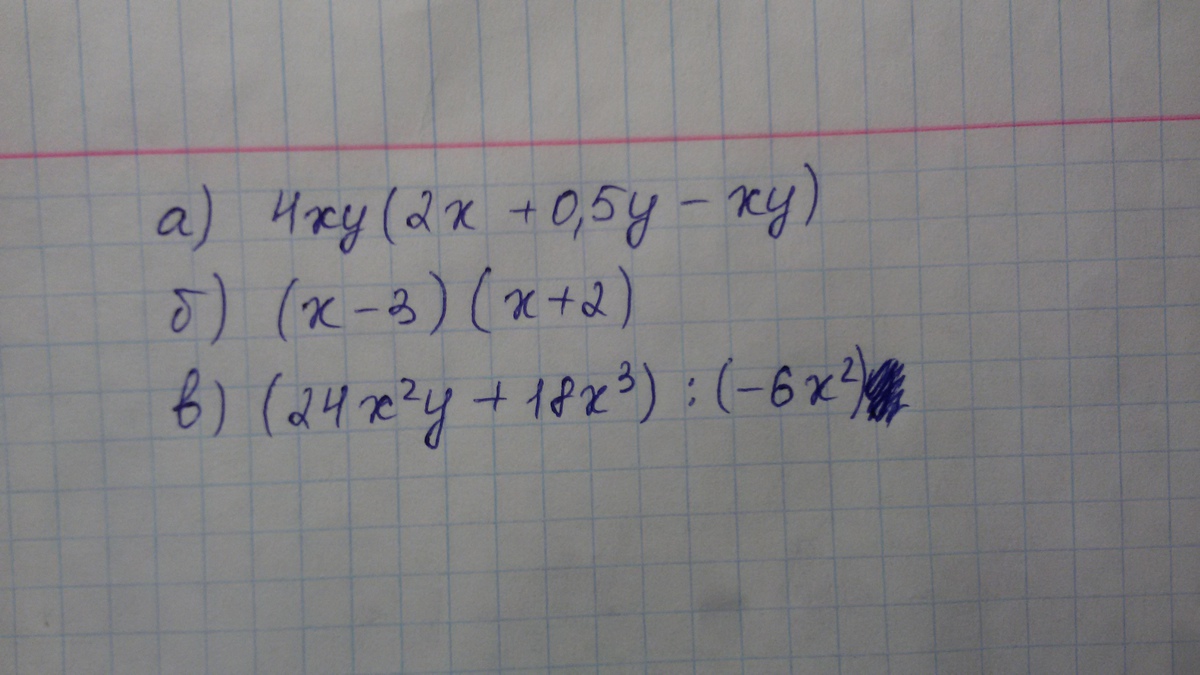 а) 4xy(2x + 0,5y - xy)
б) (x - 3) (x + 2)
в) (24x²y + 18x³) : (-6x²)